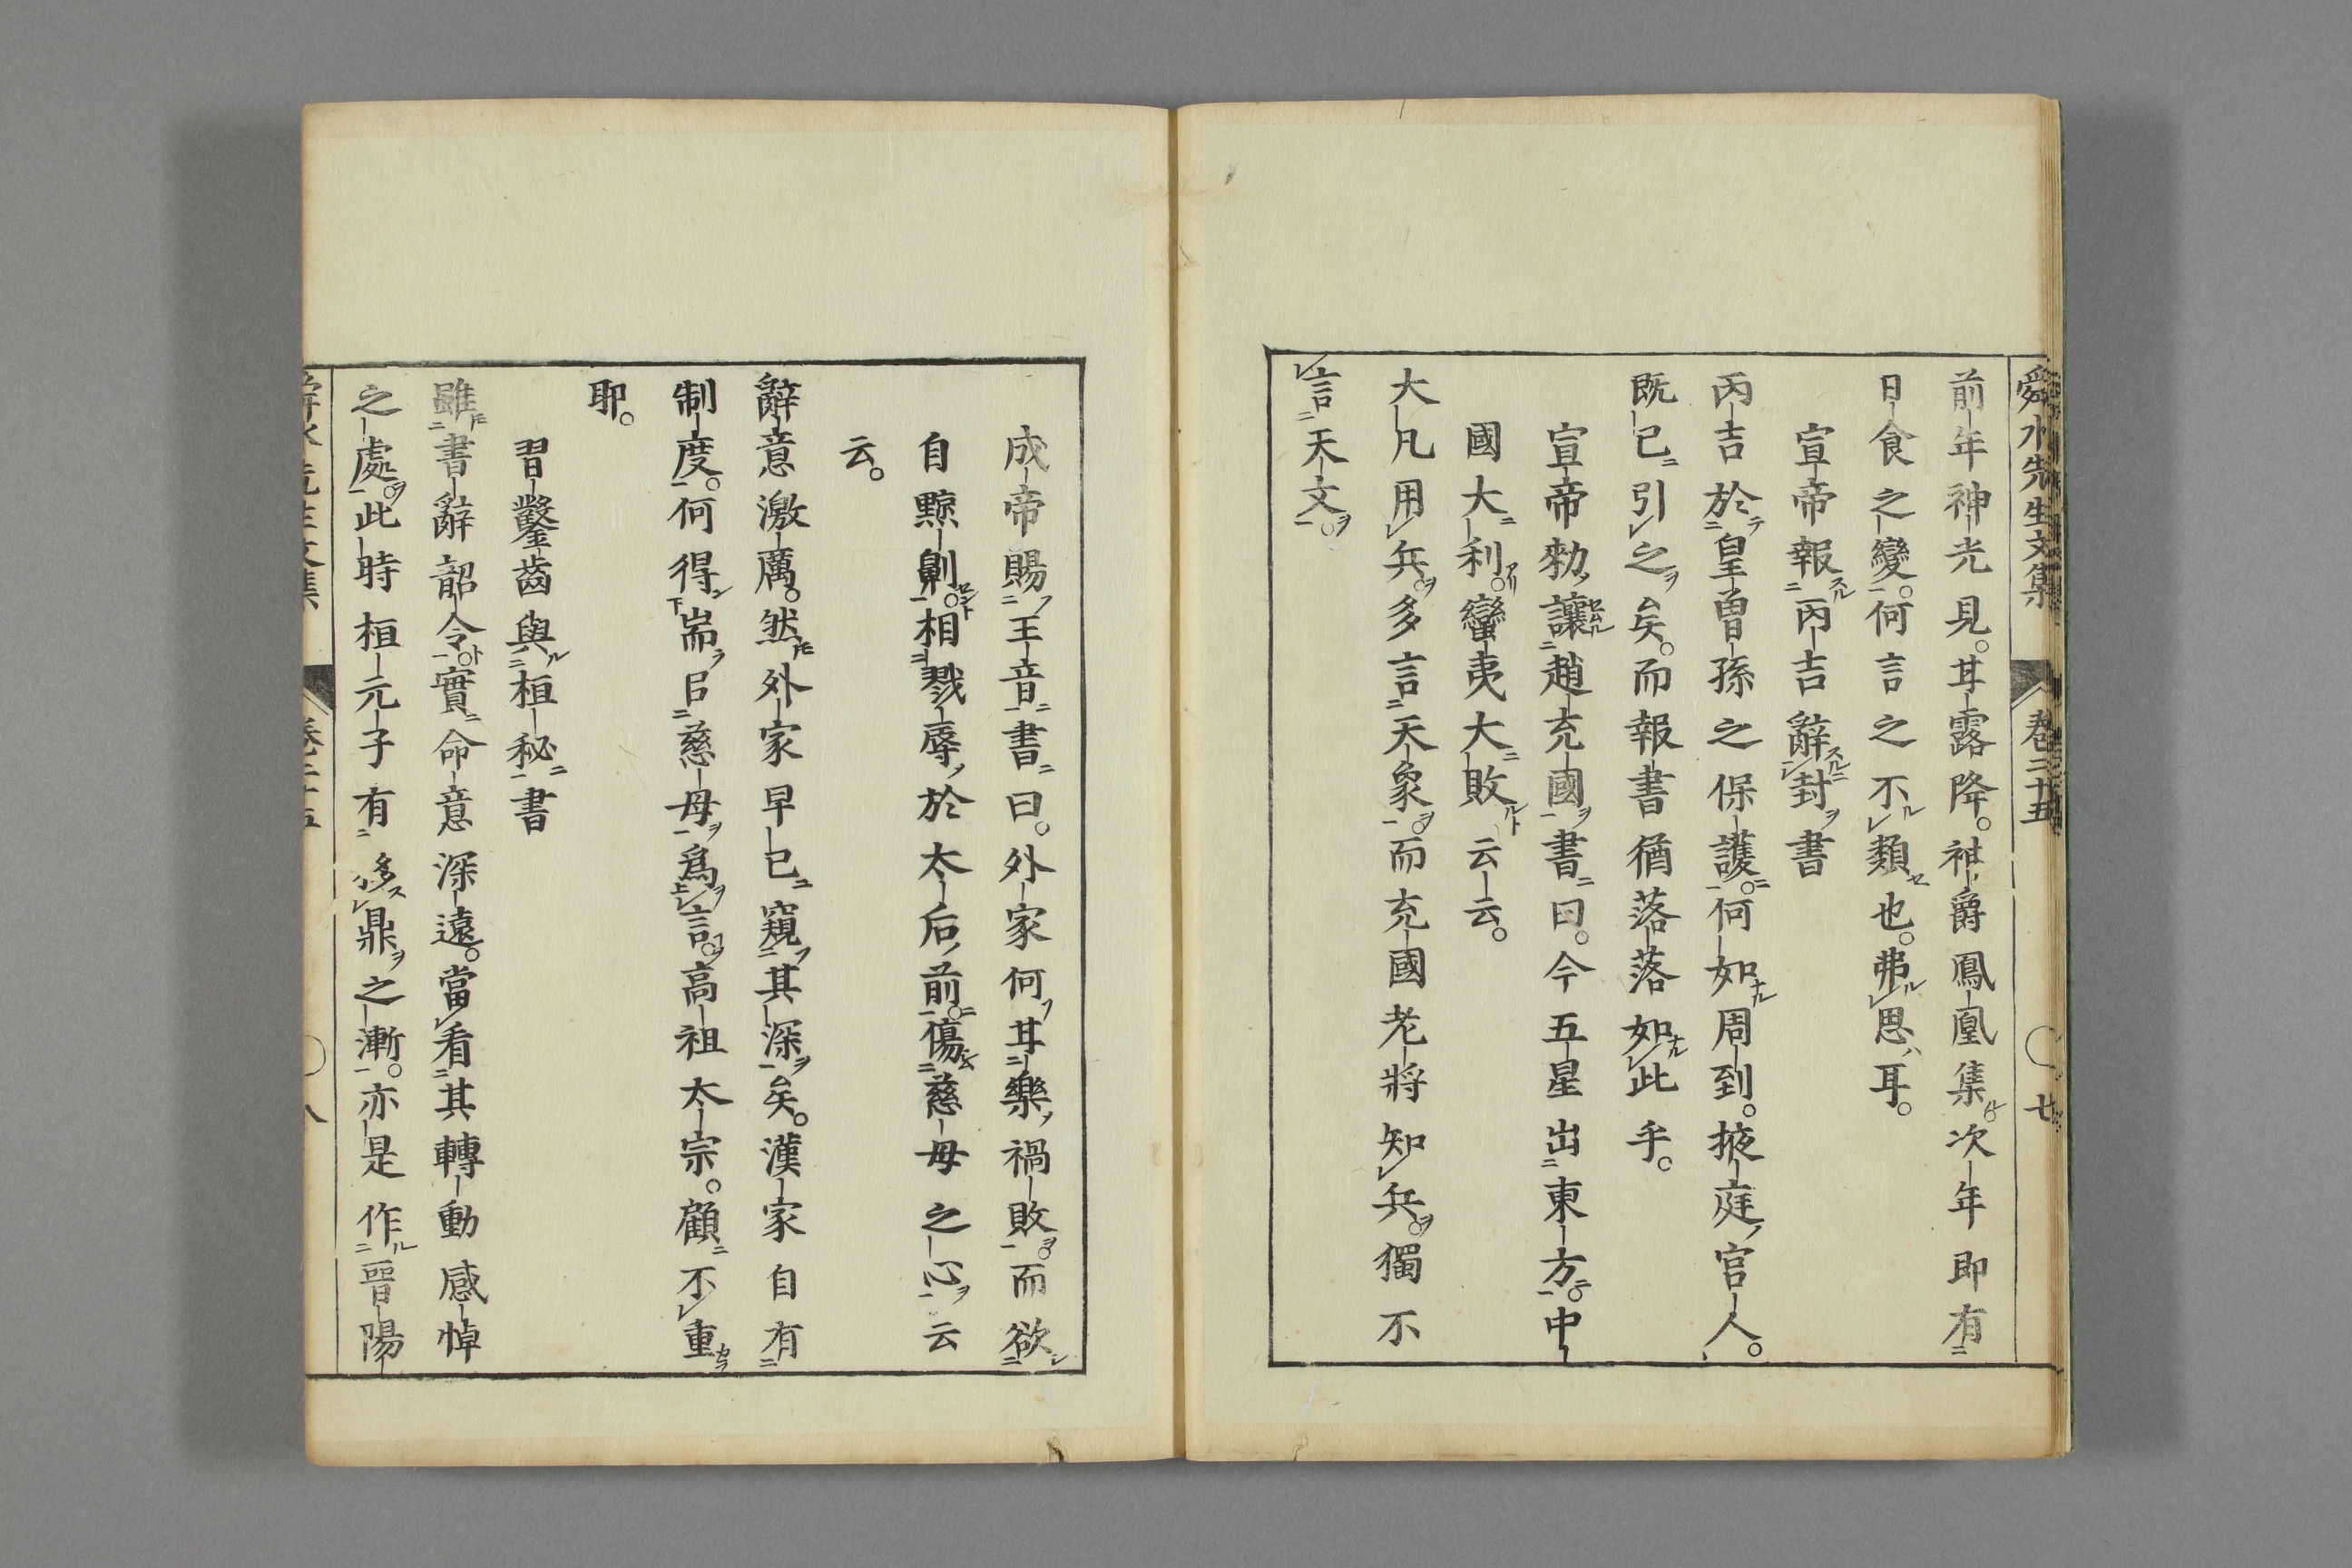 舜水先生文集 卷二十五 ○ 七
前年神光見。甘露降。神爵鳳凰集。次年即有
日食之變。何言之不類也。弗思耳。
宣帝報丙吉辭封書
丙吉於皇曽孫之保護。何如周到。掖庭宮人。
既已引之矣。而報書猶落落如此乎。
宣帝勑讓趙充國書曰。今五星出東方。中
國大利。蠻夷大敗云云。
大凡用兵。多言天象。而充國老將知兵。獨不
言天文。
成帝賜王音書曰。外家何甘樂禍敗。而欲
自黥劓。相戮辱於太后前。傷慈母之心云
云。
辭意激厲。然外家早已窺其深矣。漢家自有
制度。何得耑㠯慈母爲言。高祖太宗。顧不重
耶。
習鑿齒與桓秘書
雖書辭韶令。實命意深遠。當看其轉動感悼
之處。此時桓元子有移鼎之漸。亦是作晉陽
舜水先生文集 卷二十五 ○ 八